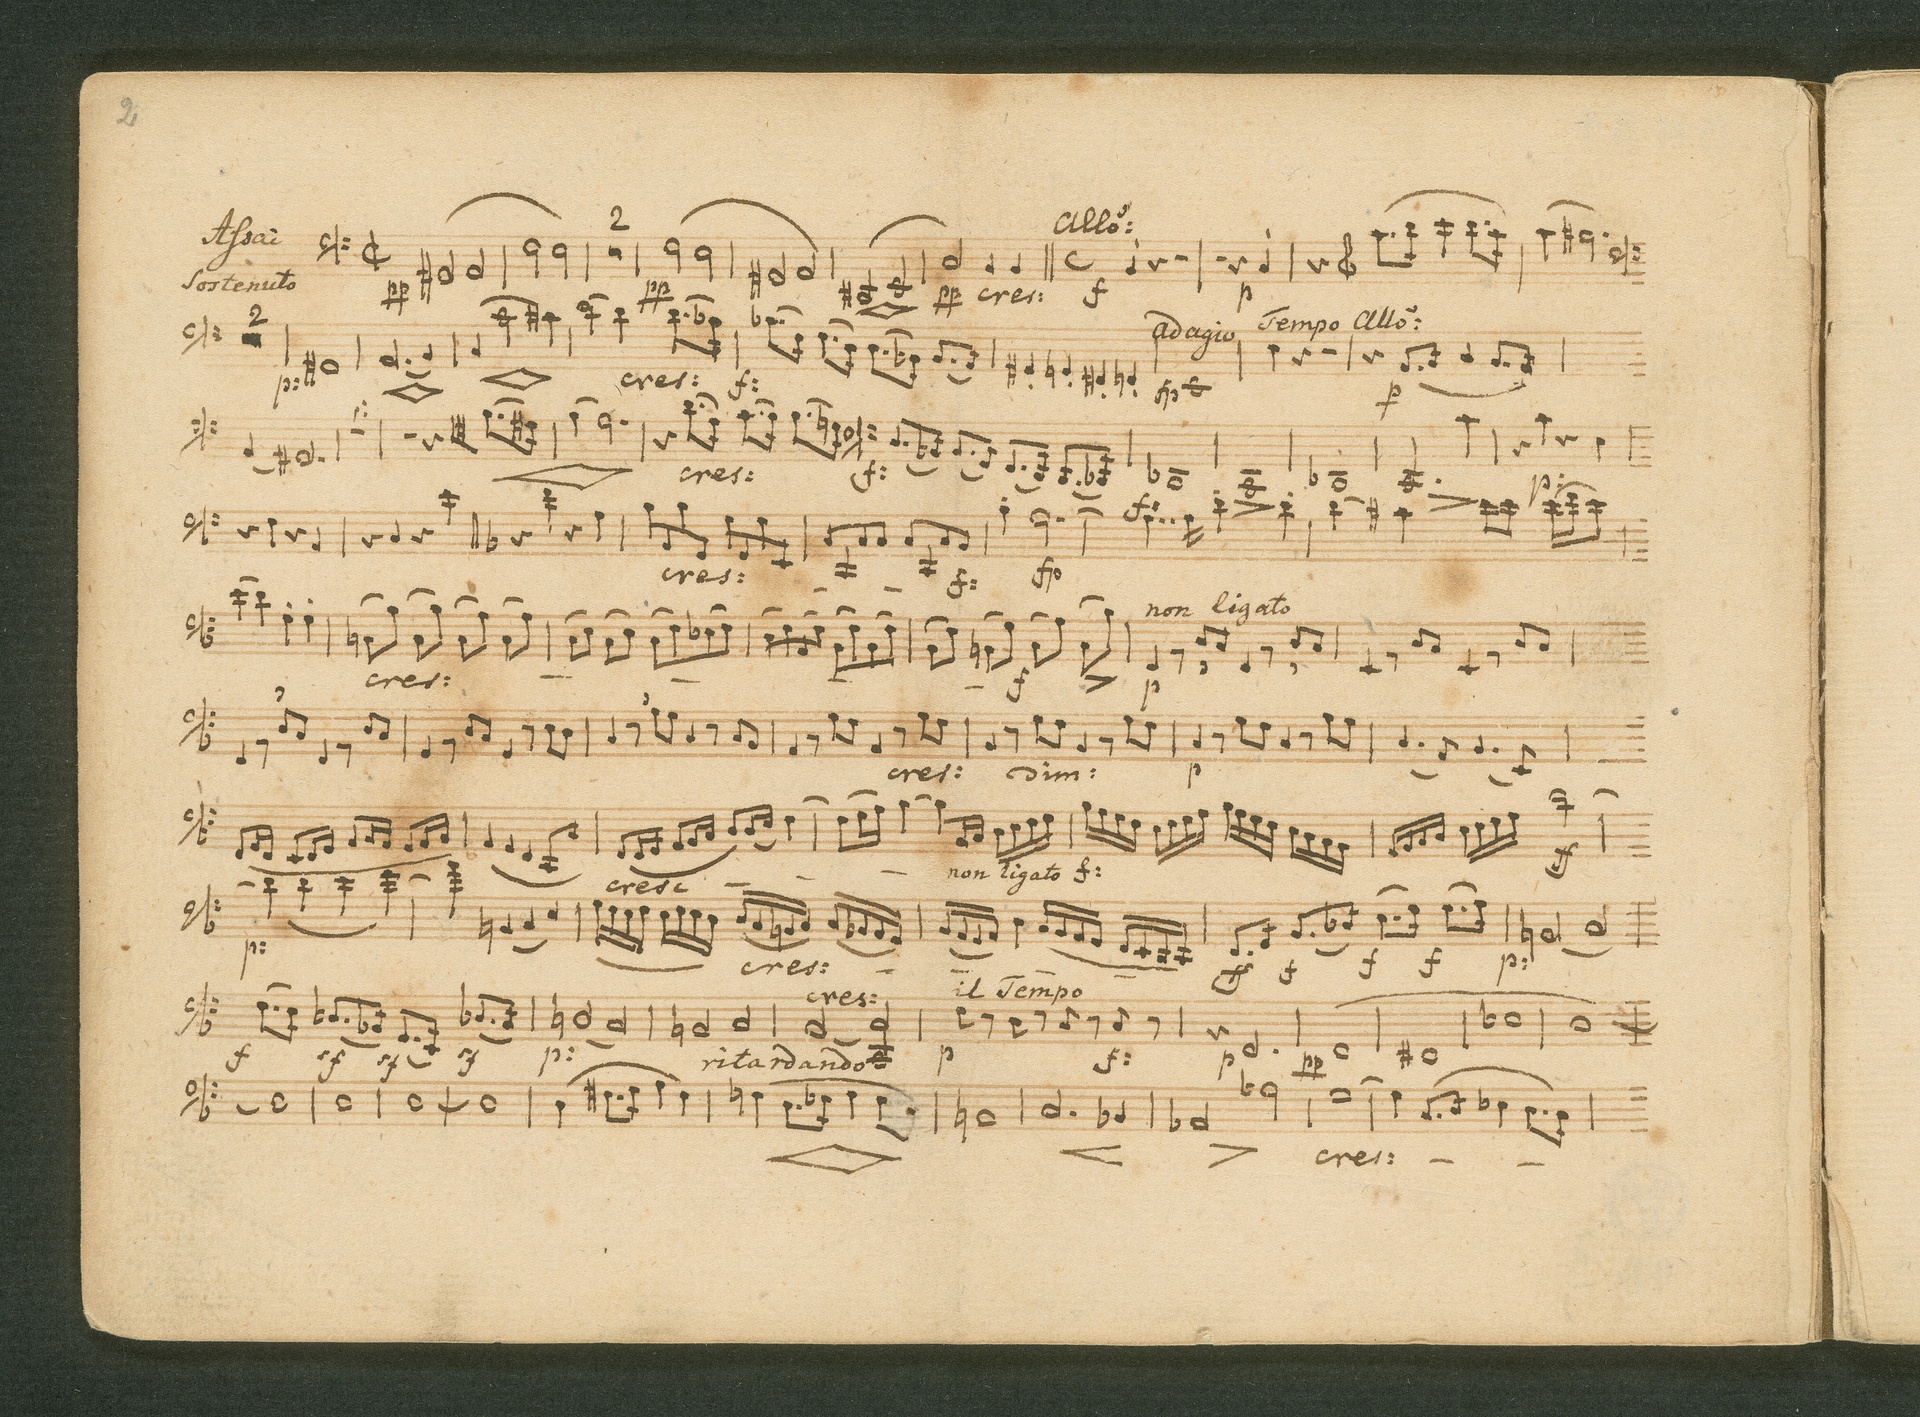 2
Assai
Sostenuto
2
Allo:
pp
pp
pp cres:
f
p
2
adagio Tempo Allo:
p:
cres: f:
fp
p
cres:
f:
p:
f:
cres:
f:
fp
non ligato
cres:
f
p
cres: Dim:
p
cresc
non ligato f:
p:
cres:
f f f
p:
cres:
il Tempo
f sf sf sf p:
ritardando
p
f:
p pp
cres: